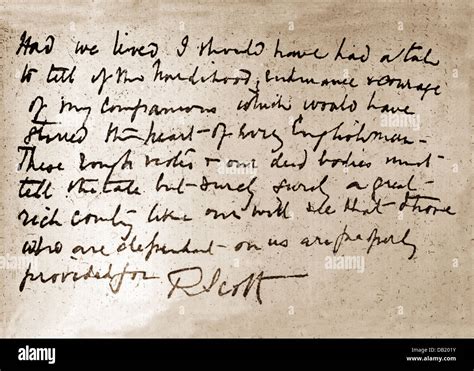 Had we lived I should have had a tale
to tell of the hardihood, endurance & courage
of my companions which would have
stirred the heart of every Englishman -
These rough notes & our dead bodies must
tell the tale but surely surely a great
rich country like ours will see that those
who are dependent on us are properly
provided for
R Scott
alamy
alamy
alamy
a
a
alamy stock photo
DB201Y
www.alamy.com